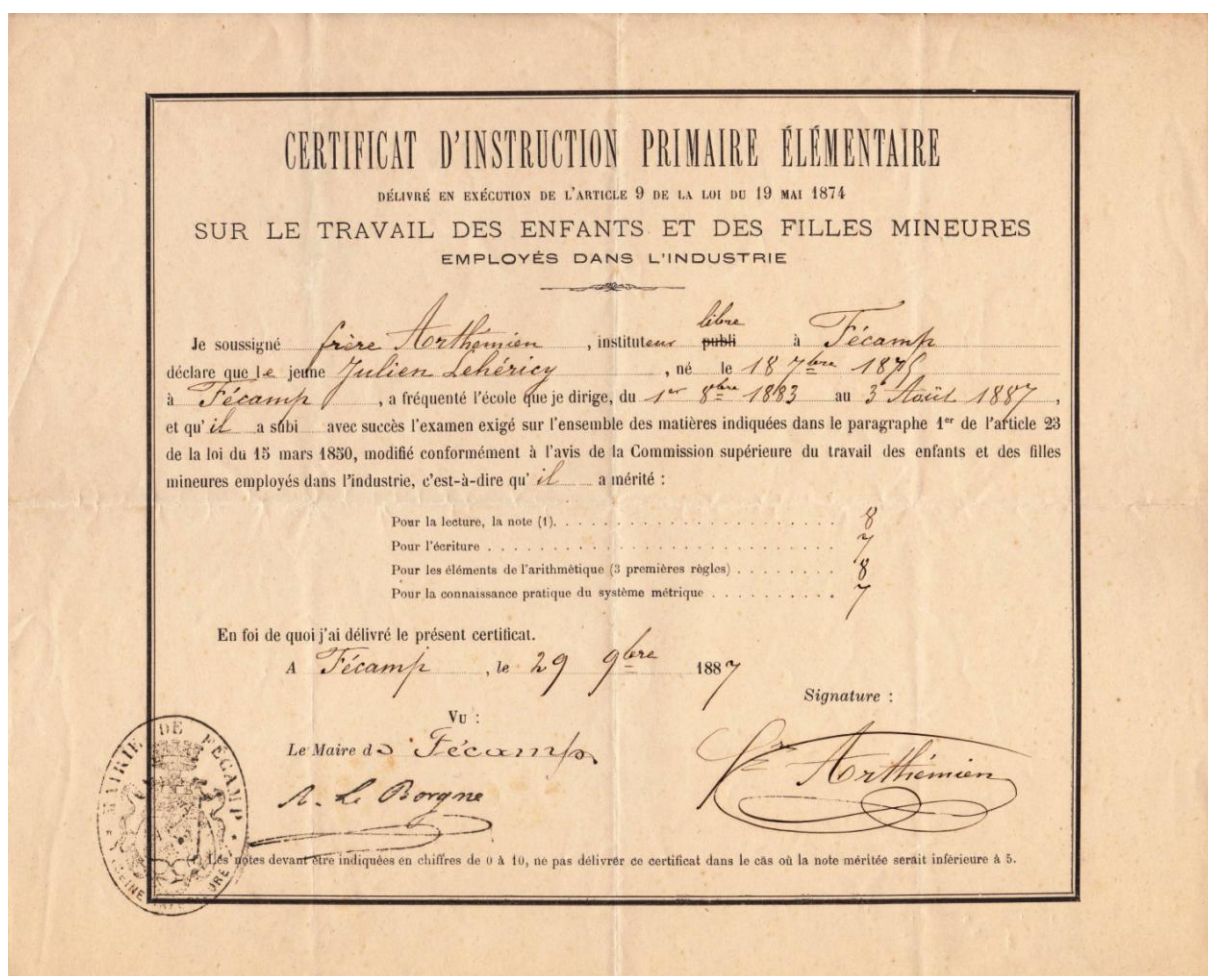 CERTIFICAT D'INSTRUCTION PRIMAIRE ÉLÉMENTAIRE
DÉLIVRÉ EN EXÉCUTION DE L'ARTICLE 9 DE LA LOI DU 19 MAI 1874
SUR LE TRAVAIL DES ENFANTS ET DES FILLES MINEURES
EMPLOYÉS DANS L'INDUSTRIE
libre
Je soussigné frère Arthémien, instituteur publi à Fécamp
déclare que le jeune Julien Lehéricy, né le 18 7bre 1875
à Fécamp, a fréquenté l'école que je dirige, du 1er 8bre 1883 au 3 Août 1887,
et qu'il a subi avec succès l'examen exigé sur l'ensemble des matières indiquées dans le paragraphe 1er de l'article 23
de la loi du 15 mars 1850, modifié conformément à l'avis de la Commission supérieure du travail des enfants et des filles
mineures employés dans l'industrie, c'est-à-dire qu'il a mérité :
Pour la lecture, la note (1). 8
Pour l'écriture 7
Pour les éléments de l'arithmétique (3 premières règles) 8
Pour la connaissance pratique du système métrique 7
En foi de quoi j'ai délivré le présent certificat.
A Fécamp, le 29 9bre 1887
Signature :
Vu :
Le Maire de Fécamp
fr Arthémien
A. Le Borgne
MAIRIE DE FÉCAMP
SEINE INFÉRIEURE
(1) Les notes devant être indiquées en chiffres de 0 à 10, ne pas délivrer ce certificat dans le cas où la note méritée serait inférieure à 5.